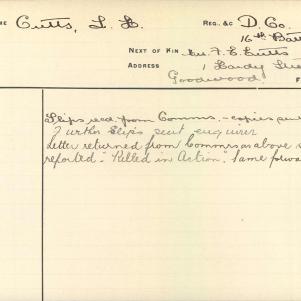 ME Cutts, L. H. REG. &C D. Co.
16th Batt
NEXT OF KIN Mr. F. E. Cutts
ADDRESS 1 Hardy Stre
Goodwood F
Slips recd. from Comms. - copies sent
Further slips sent enquirer
Letter returned from Commrs as above s
reported. "Killed in Action". Same forwa